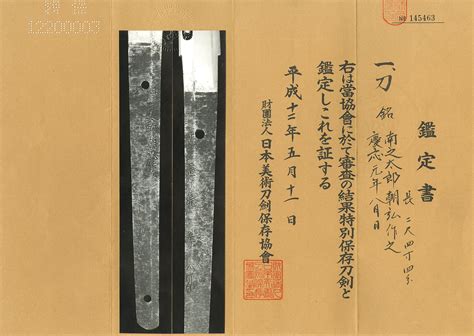 № 145463
鑑定書
一、刀 銘 南之太郎朝弘作之
慶応元年八月日
長 二尺四寸四分
右は當協會に於て審査の結果特別保存刀剣と
鑑定しこれを証する
平成十二年五月十一日
財團法人 日本美術刀剣保存協會
12200003